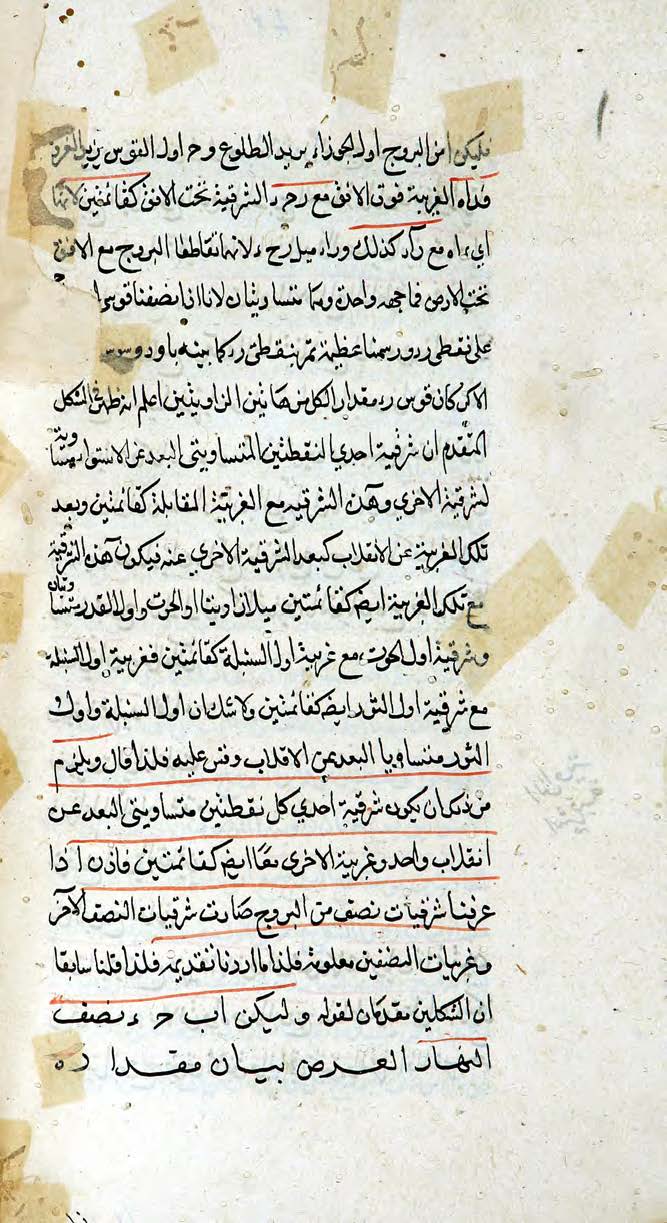 فليكن ا من البروج اول الجوزاء يريد الطلوع و ح اول القوس يريد الغرو
فداه الغربية فوق الافق مع رح ء الشرقية تحت الافق كقائمتين لانها
اي داه مع راد كذلك وراء ميل رح ء لانهما تقاطعا البروج مع الافق
تحت الارض في جهة واحدة وهما متساويتان لانا اذا نصفنا قوس
على نقطتي رد ورسمنا عظيمة تمر بنقطتي ر كما بينه ثاودوسوس
الاكر كان قوس رء مقدار الكل من هاتين الزاويتين اعلم انه ظهر في الشكل
المتقدم ان شرقية احدي النقطتين المتساويتي البعد عن الاستواء متساوية
لشرقية الاخري وهذه الشرقيه مع الغربية المقابلة كقائمتين وبعد
تلك الغربية عن الانقلاب كبعد الشرقية الاخري عنه فيكون هذه الشرقية
مع تلك الغربية ايض كقائمتين مثلا زاويتا اول الحوت واول القدر متساويتان
وشرقية اول الحوت مع غربية اول السنبلة كقائمتين فغربية اول السنبلة
مع شرقية اول الثور ايض كقائمتين ولا شك ان اول السنبلة واول
الثور متساويا البعد عن الانقلاب وقس عليه فلذا قال ويلزم
من ذلك ان يكون شرقية احدي كل نقطتين متساويتي البعد عن
انقلاب واحد وغربية الاخرى معا ايض كقائمتين فاذن اذا
عرفنا شرقيات نصف من البروج صارت شرقيات النصف الآخر
وغربيات النصفين معلومة فلذا ما اردنا تقديمه فلذا قلنا سابقا
ان الشكلين مقدمان لقوله وليكن اب ح ء نصف
النهار الغرض بيان مقدار ده